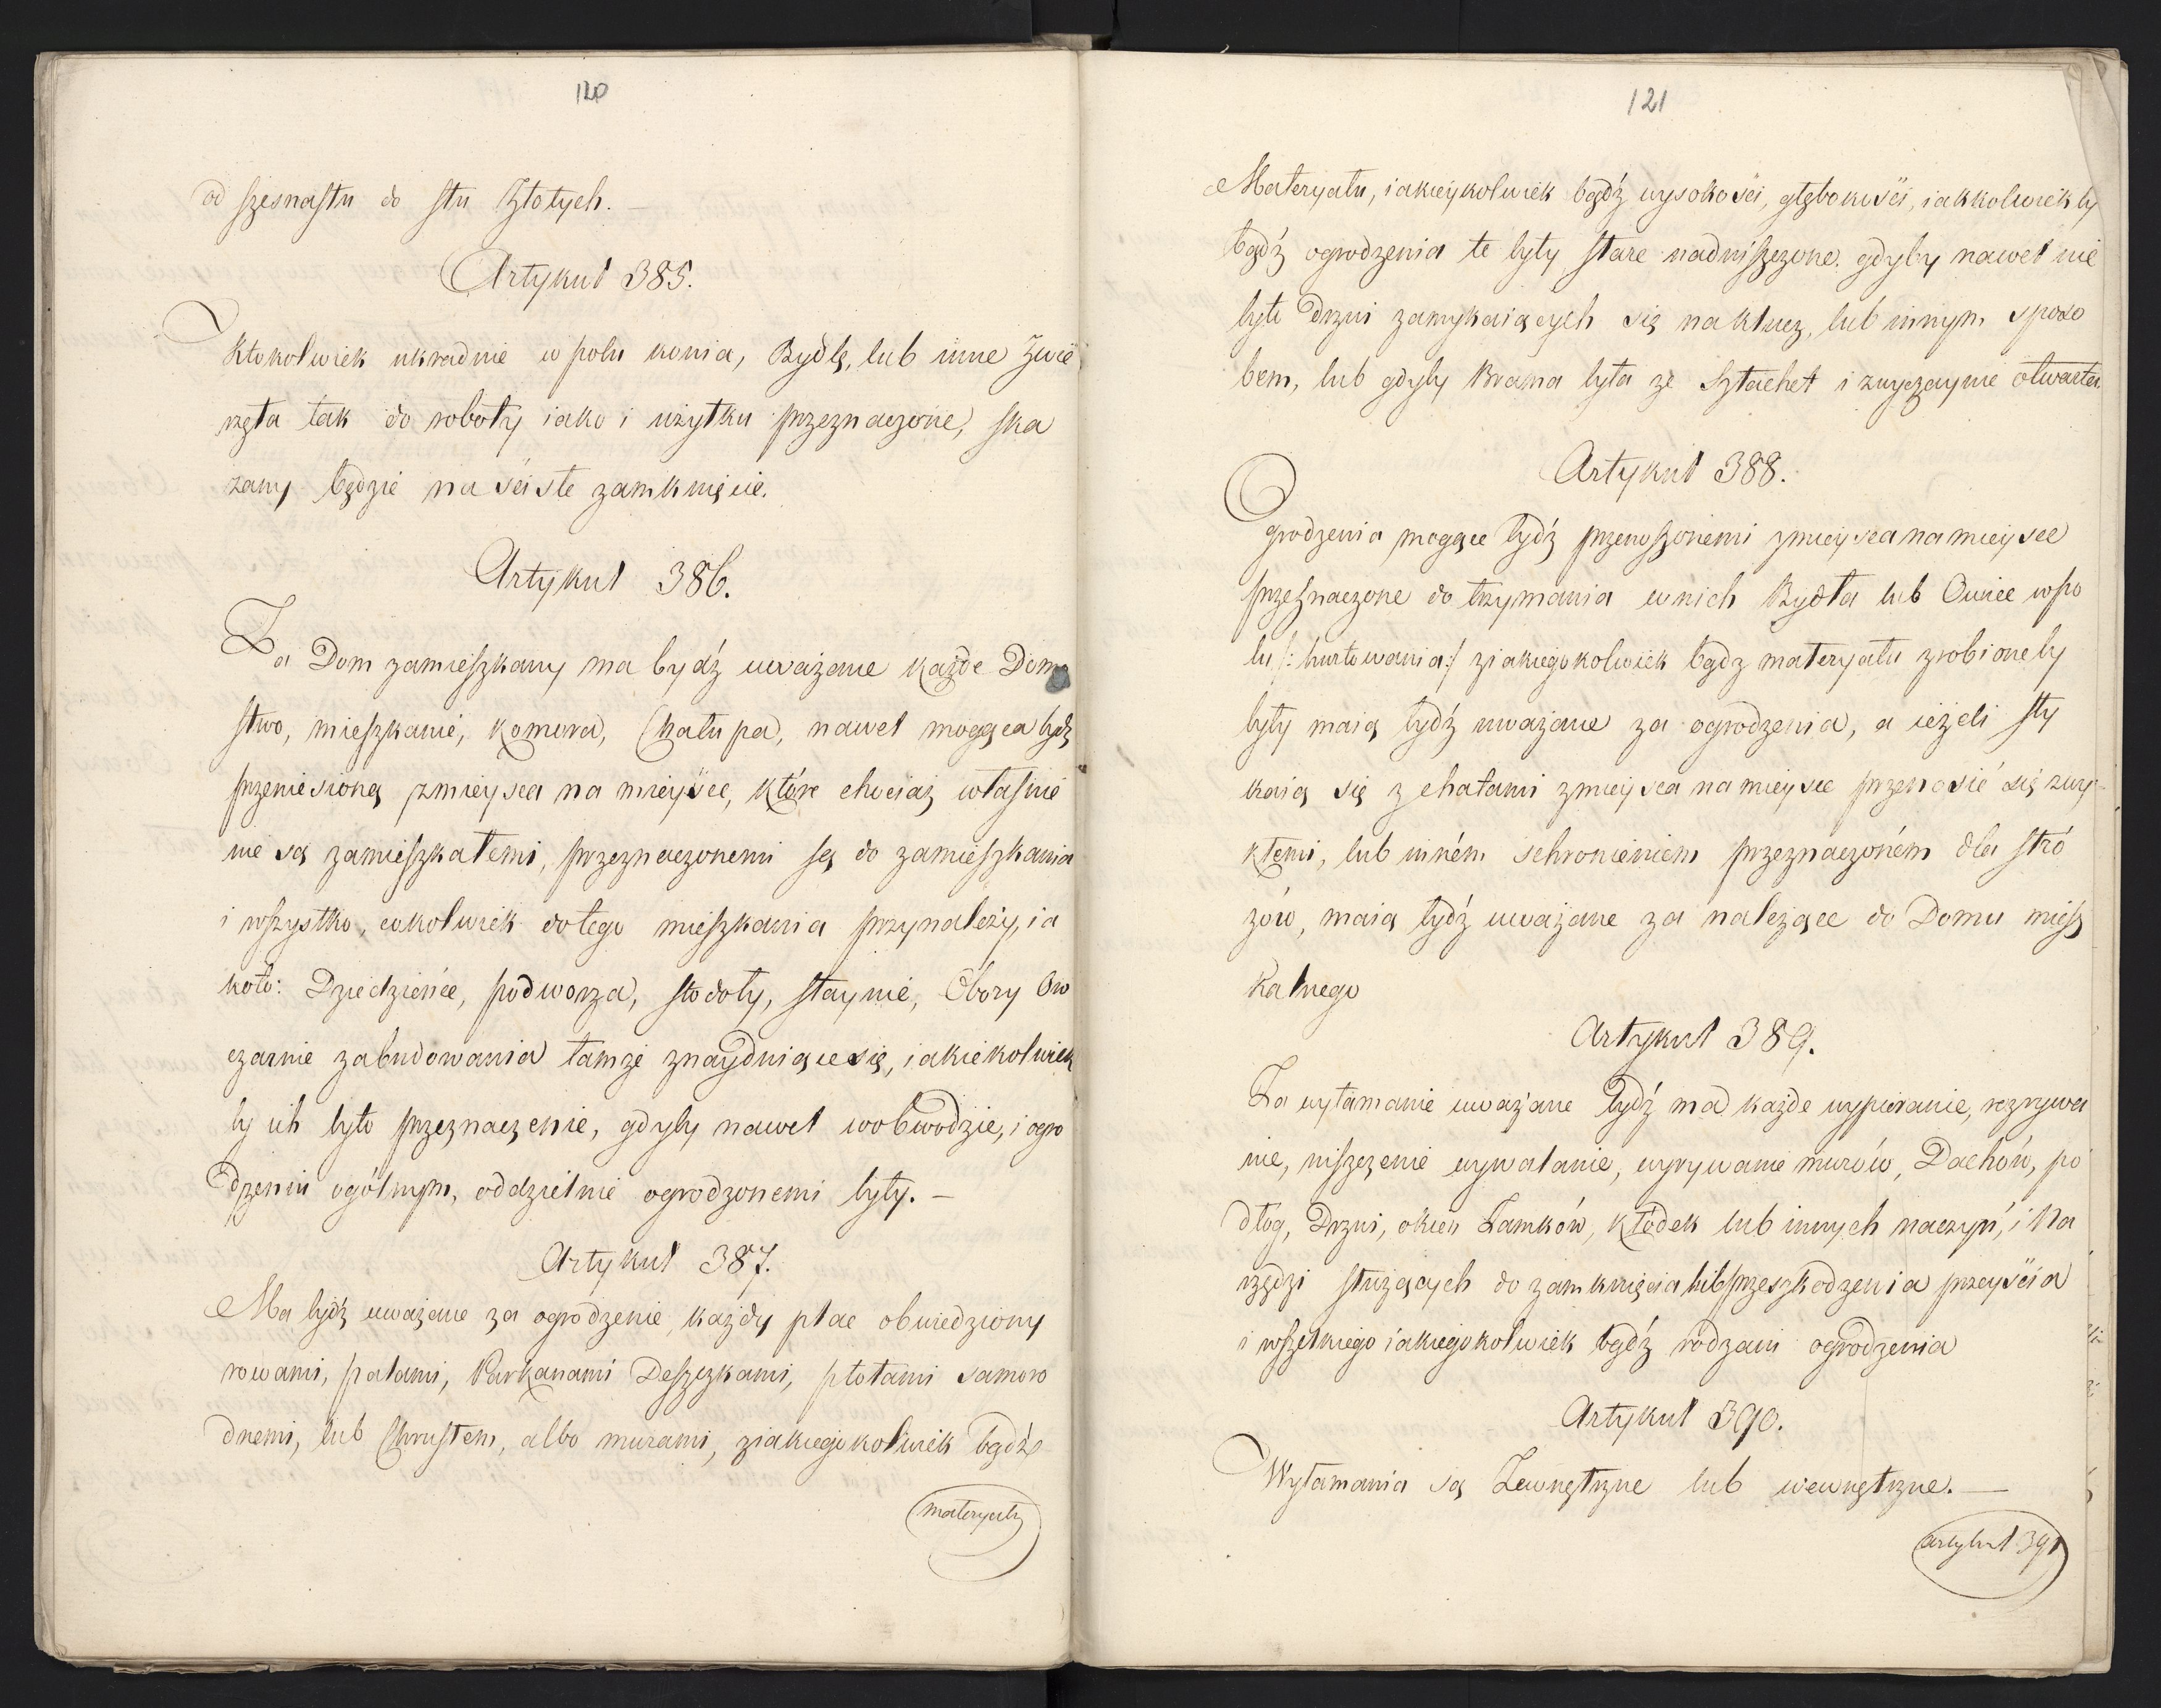 120
od szesnastu do stu Złotych. —
Artykuł 385.
Ktokolwiek ukradnie w polu konia, Bydlę, lub inne Zwie
rzęta tak do roboty iako i użytku przeznaczone, ska
zany będzie na ściste zamknięcie.
Artykuł 386.
Za Dom zamieszkany ma bydź uważane każde Domo
stwo, mieszkanie, komora, Chałupa, nawet mogąca bydź
przeniesioną zmieysca na mieysce, które chociaż własnie
nie są zamieszkałemi, przeznaczonemi są do zamieszkania
i wszystko, cokolwiek do tego mieszkania przynależy, ia
koto: Dziedzieńce, podworza, stodoły, staynie, Obory Ow
czarnie zabudowania tamże znayduiące się, iakiekolwiek
by ich było przeznaczenie, gdyby nawet wobwodzie, i ogro
dzeniu ogólnym, oddzielnie ogrodzonemi były. —
Artykuł 387.
Ma bydź uważane za ogrodzenie, każdy plac obwiedziony
rowami, palami, Parkanami Deszczkami, płotami samoro
dnemi, lub Chrustem, albo murami, ziakiegokolwiek bądź
materyału
121
Materyału, iakieykolwiek bądź wysokości, głębokości, iakkolwiek by
bądź ogrodzenia te były stare nadniszczone. gdyby nawet nie
było Drzwi zamykaiących się na klucz, lub innym sposo
bem, lub gdyby Brama była ze Sztachet i zwyczaynie otwarta.
Artykuł 388.
Ogrodzenia mogące bydź przenoszonemi zmieysca na mieysce
przeznaczone do trzymania wnich Bydła lub Owiec wpo
lu /: hurtowania :/ ziakiegokolwiek bądz materyału zrobione by
były maią bydź uważane za ogrodzenia, a ieżeli sty
kaią się z chatami zmieysca na mieysce przenosić się zwy-
kłemi, lub inném schronieniem przeznaczoném dla stró
żów, maią bydź uważane za należące do Domu miesz
kalnego
Artykuł 389.
Za wyłamanie uważane bydź ma każde wypieranie, rozrywa
nie, niszczenie wywalanie, wyrywanie murów, Dachów, po
dłog, Drzwi, okien Zamków, kłódek lub innych naczyń, i Na
rzędzi służących do zamknięcia lub przeszkodzenia przeyścia
i wszelkiego iakiegokolwiek bądź rodzaiu ogrodzenia
Artykuł 390.
Wyłamania są Zewnętrzne lub wewnętrzne. —
artykuł 391